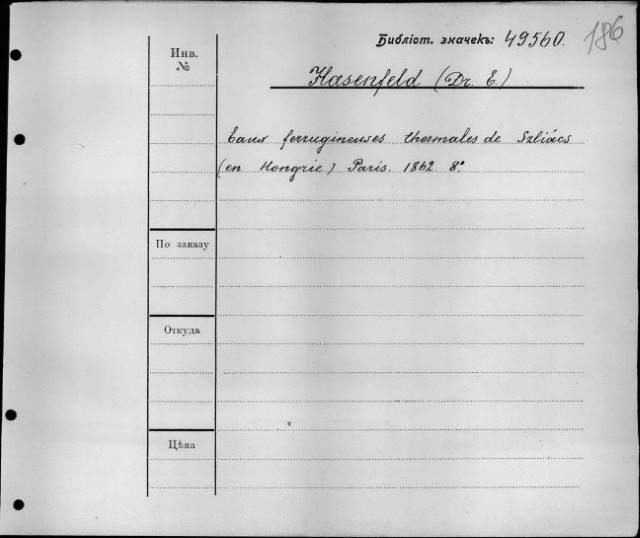 Библіот. значекъ: 49560.
186
Инв.
№
Hasenfeld (Dr. E.)
Eaux ferrugineuses thermales de Szliács
(en Hongrie) Paris. 1862. 8°
По заказу
Откуда
Цѣна